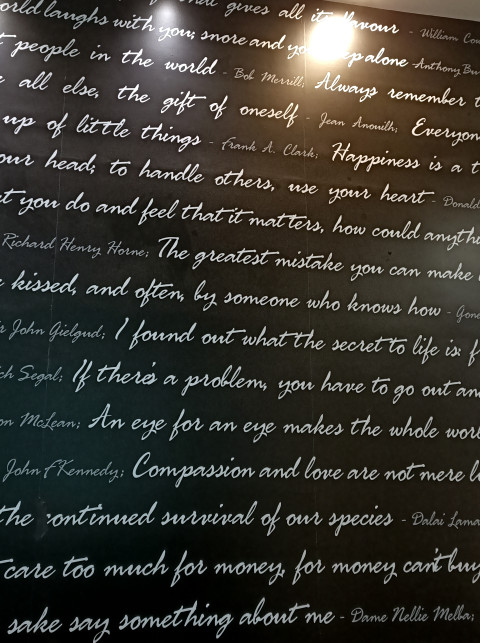 that gives all its flavour - William Cow
orld laughs with you; snore and you sleep alone - Anthony Bu
t people in the world - Bob Merrill; Always remember t
all else, the gift of oneself - Jean Anouilh; Everyon
up of little things - Frank A. Clark; Happiness is a t
our head; to handle others, use your heart - Donald
at you do and feel that it matters, how could anythi
Richard Henry Horne; The greatest mistake you can make
kissed, and often, by someone who knows how - Gone
ir John Gielgud; I found out what the secret to life is: f
ich Segal; If there's a problem, you have to go out an
on McLean; An eye for an eye makes the whole worl
John F Kennedy; Compassion and love are not mere l
the continued survival of our species - Dalai Lama
t care too much for money, for money can't buy
sake say something about me - Dame Nellie Melba;